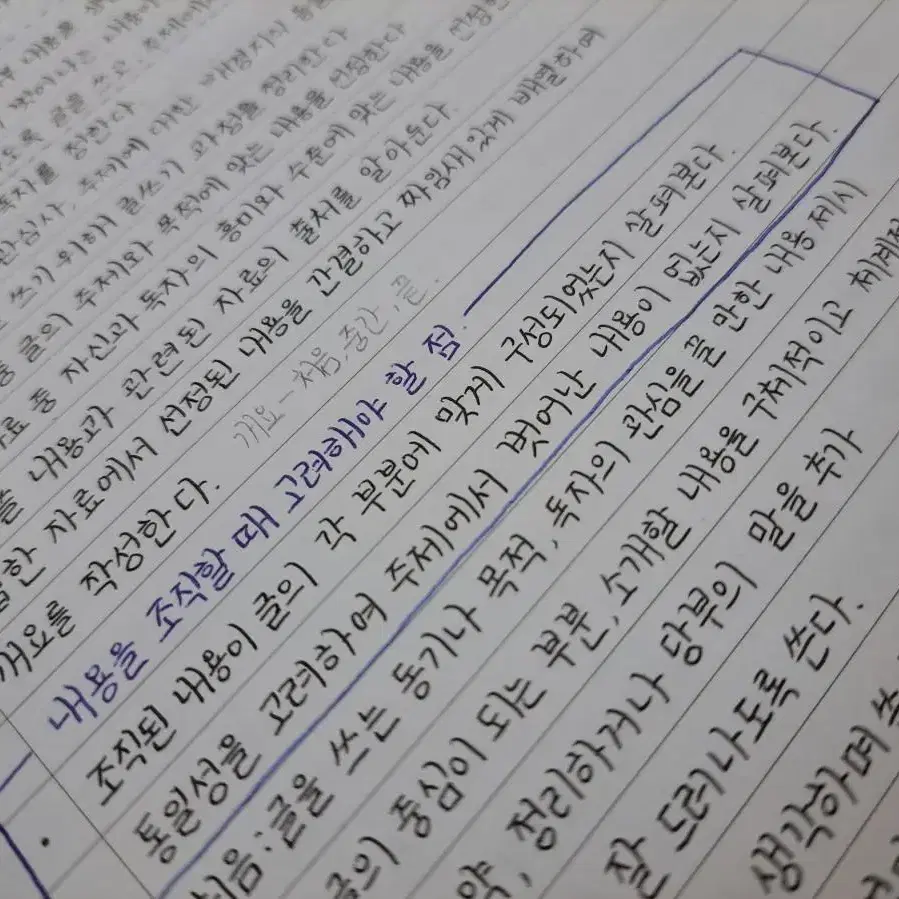 내용을
벗어나는 내용이
도록 글을 쓰고, 주제에
독자를 정한다
관심사, 주제에 대한 배경지식
쓰기 위하여 글쓰기 과정을 정리한다
글의 주제와 목적에 맞는 내용을 선정한다
료 중 자신과 독자의 흥미와 수준에 맞는 내용을 선정한
쓸 내용과 관련된 자료의 출처를 알아둔다.
한 자료에서 선정된 내용을 간결하고 짜임새 있게 배열하여
개요를 작성한다. 개요-처음, 중간, 끝.
내용을 조직할 때 고려해야 할 점.
· 조직된 내용이 글의 각 부분에 맞게 구성되었는지 살펴본다.
통일성을 고려하여 주제에서 벗어난 내용이 없는지 살펴본다.
처음: 글을 쓰는 동기나 목적, 독자의 관심을 끌 만한 내용 제시
글의 중심이 되는 부분, 소개할 내용을 구체적이고 체계적
약, 정리하거나 당부의 말을 추가
잘 드러나도록 쓴다.
생각하며 쓰